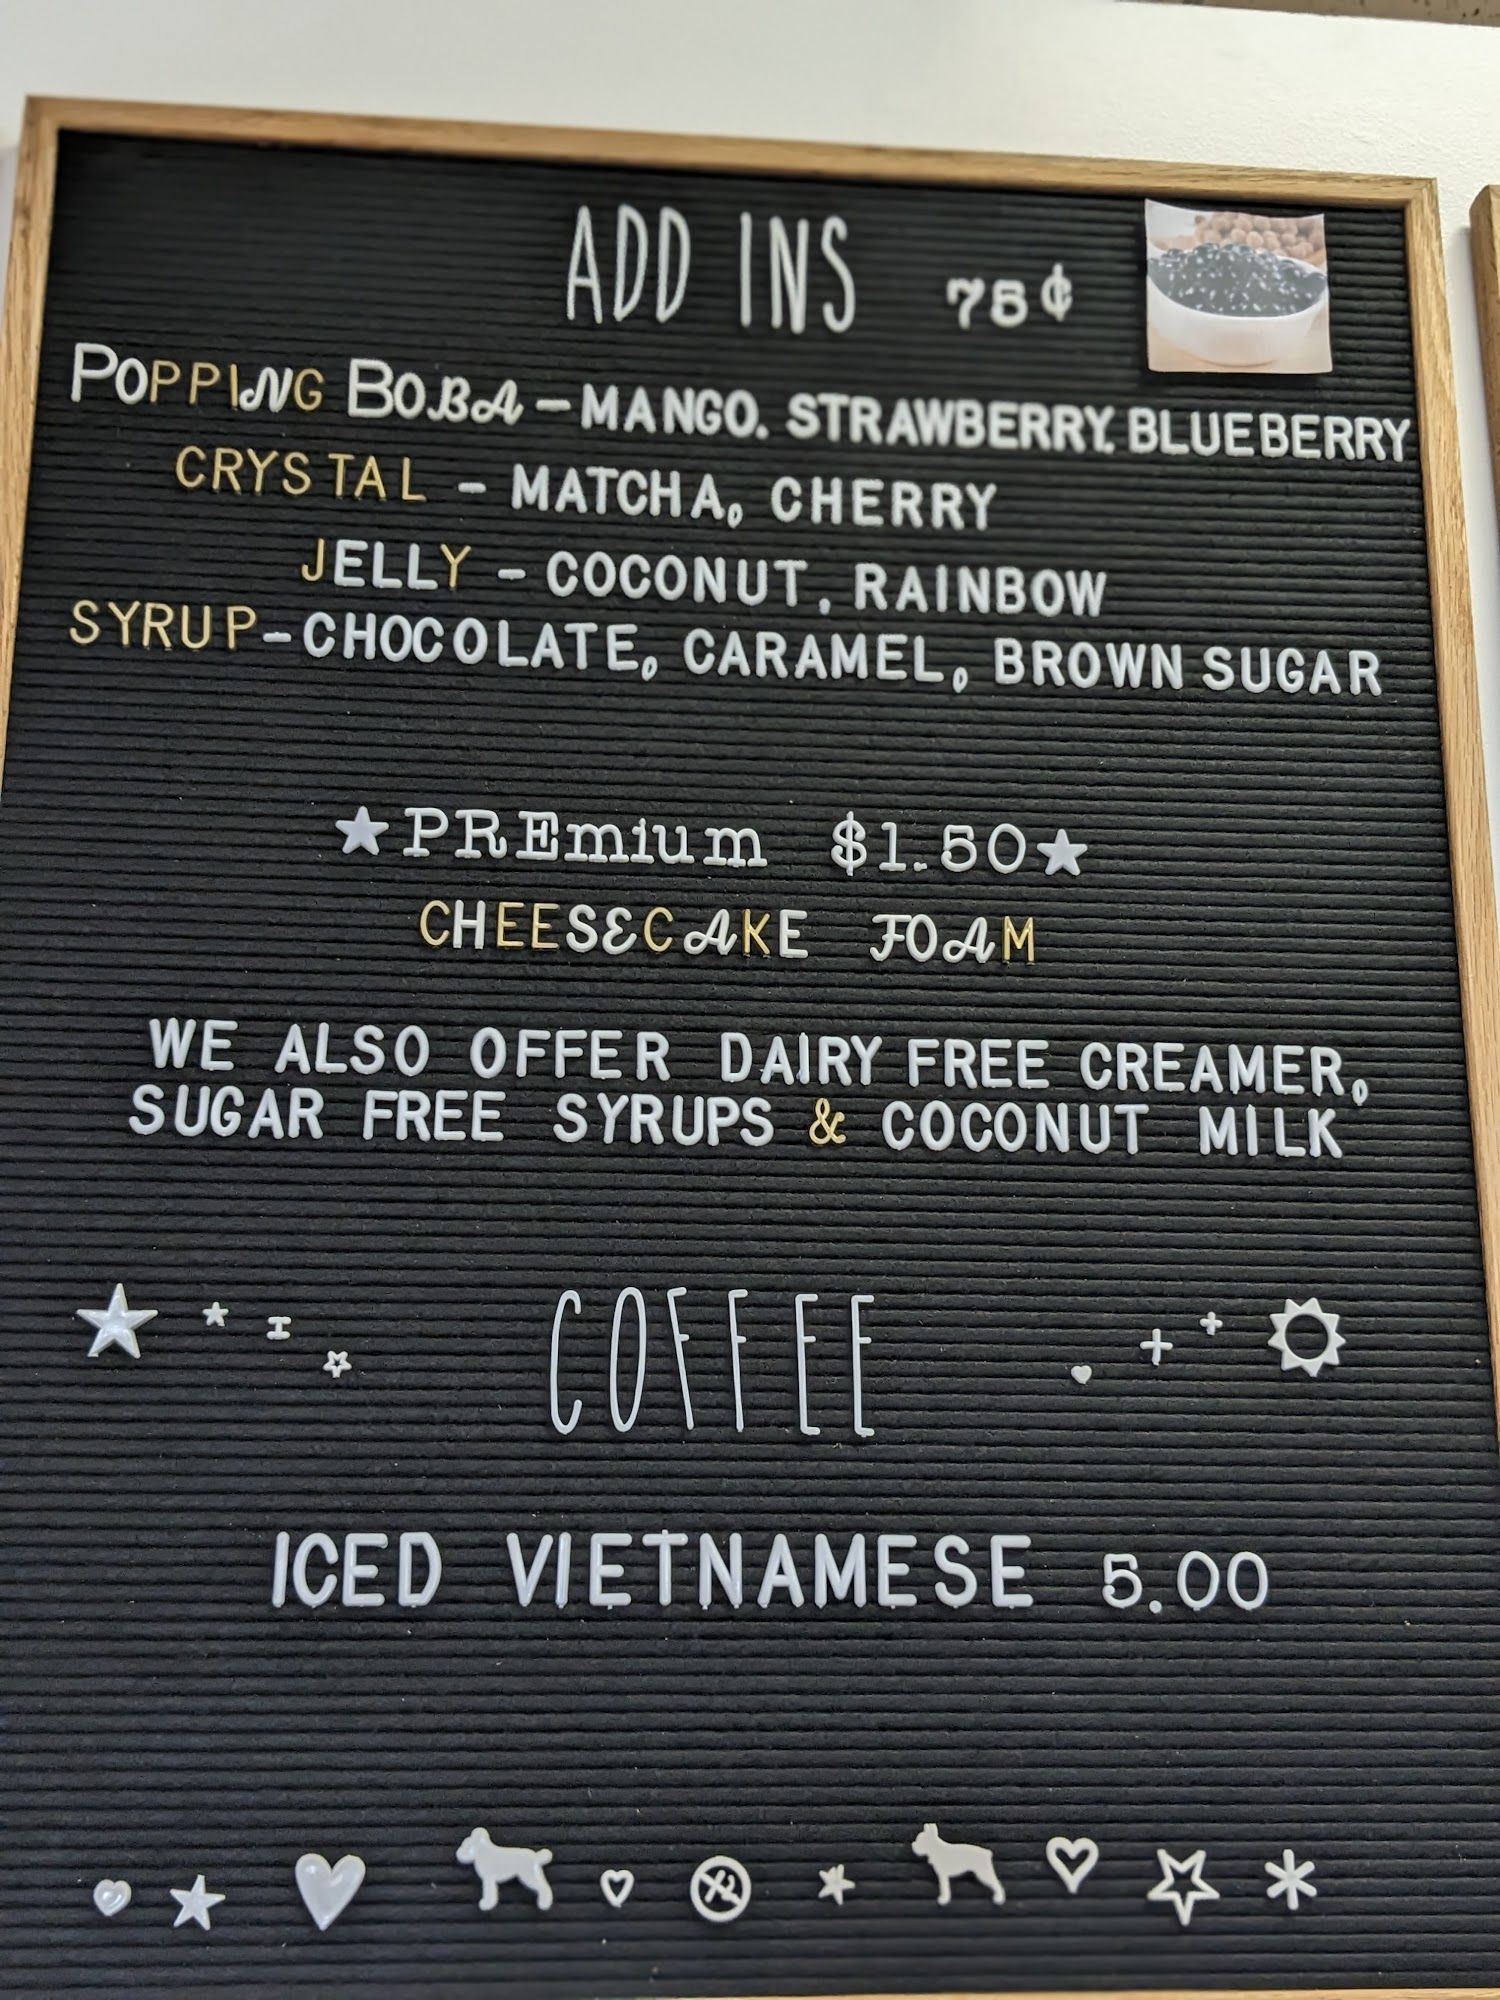 ADD INS 75¢
POPPING BOBA - MANGO. STRAWBERRY. BLUEBERRY
CRYSTAL - MATCHA, CHERRY
JELLY - COCONUT, RAINBOW
SYRUP - CHOCOLATE, CARAMEL, BROWN SUGAR
★PREmium $1.50★
CHEESECAKE FOAM
WE ALSO OFFER DAIRY FREE CREAMER,
SUGAR FREE SYRUPS & COCONUT MILK
COFFEE
ICED VIETNAMESE 5.00